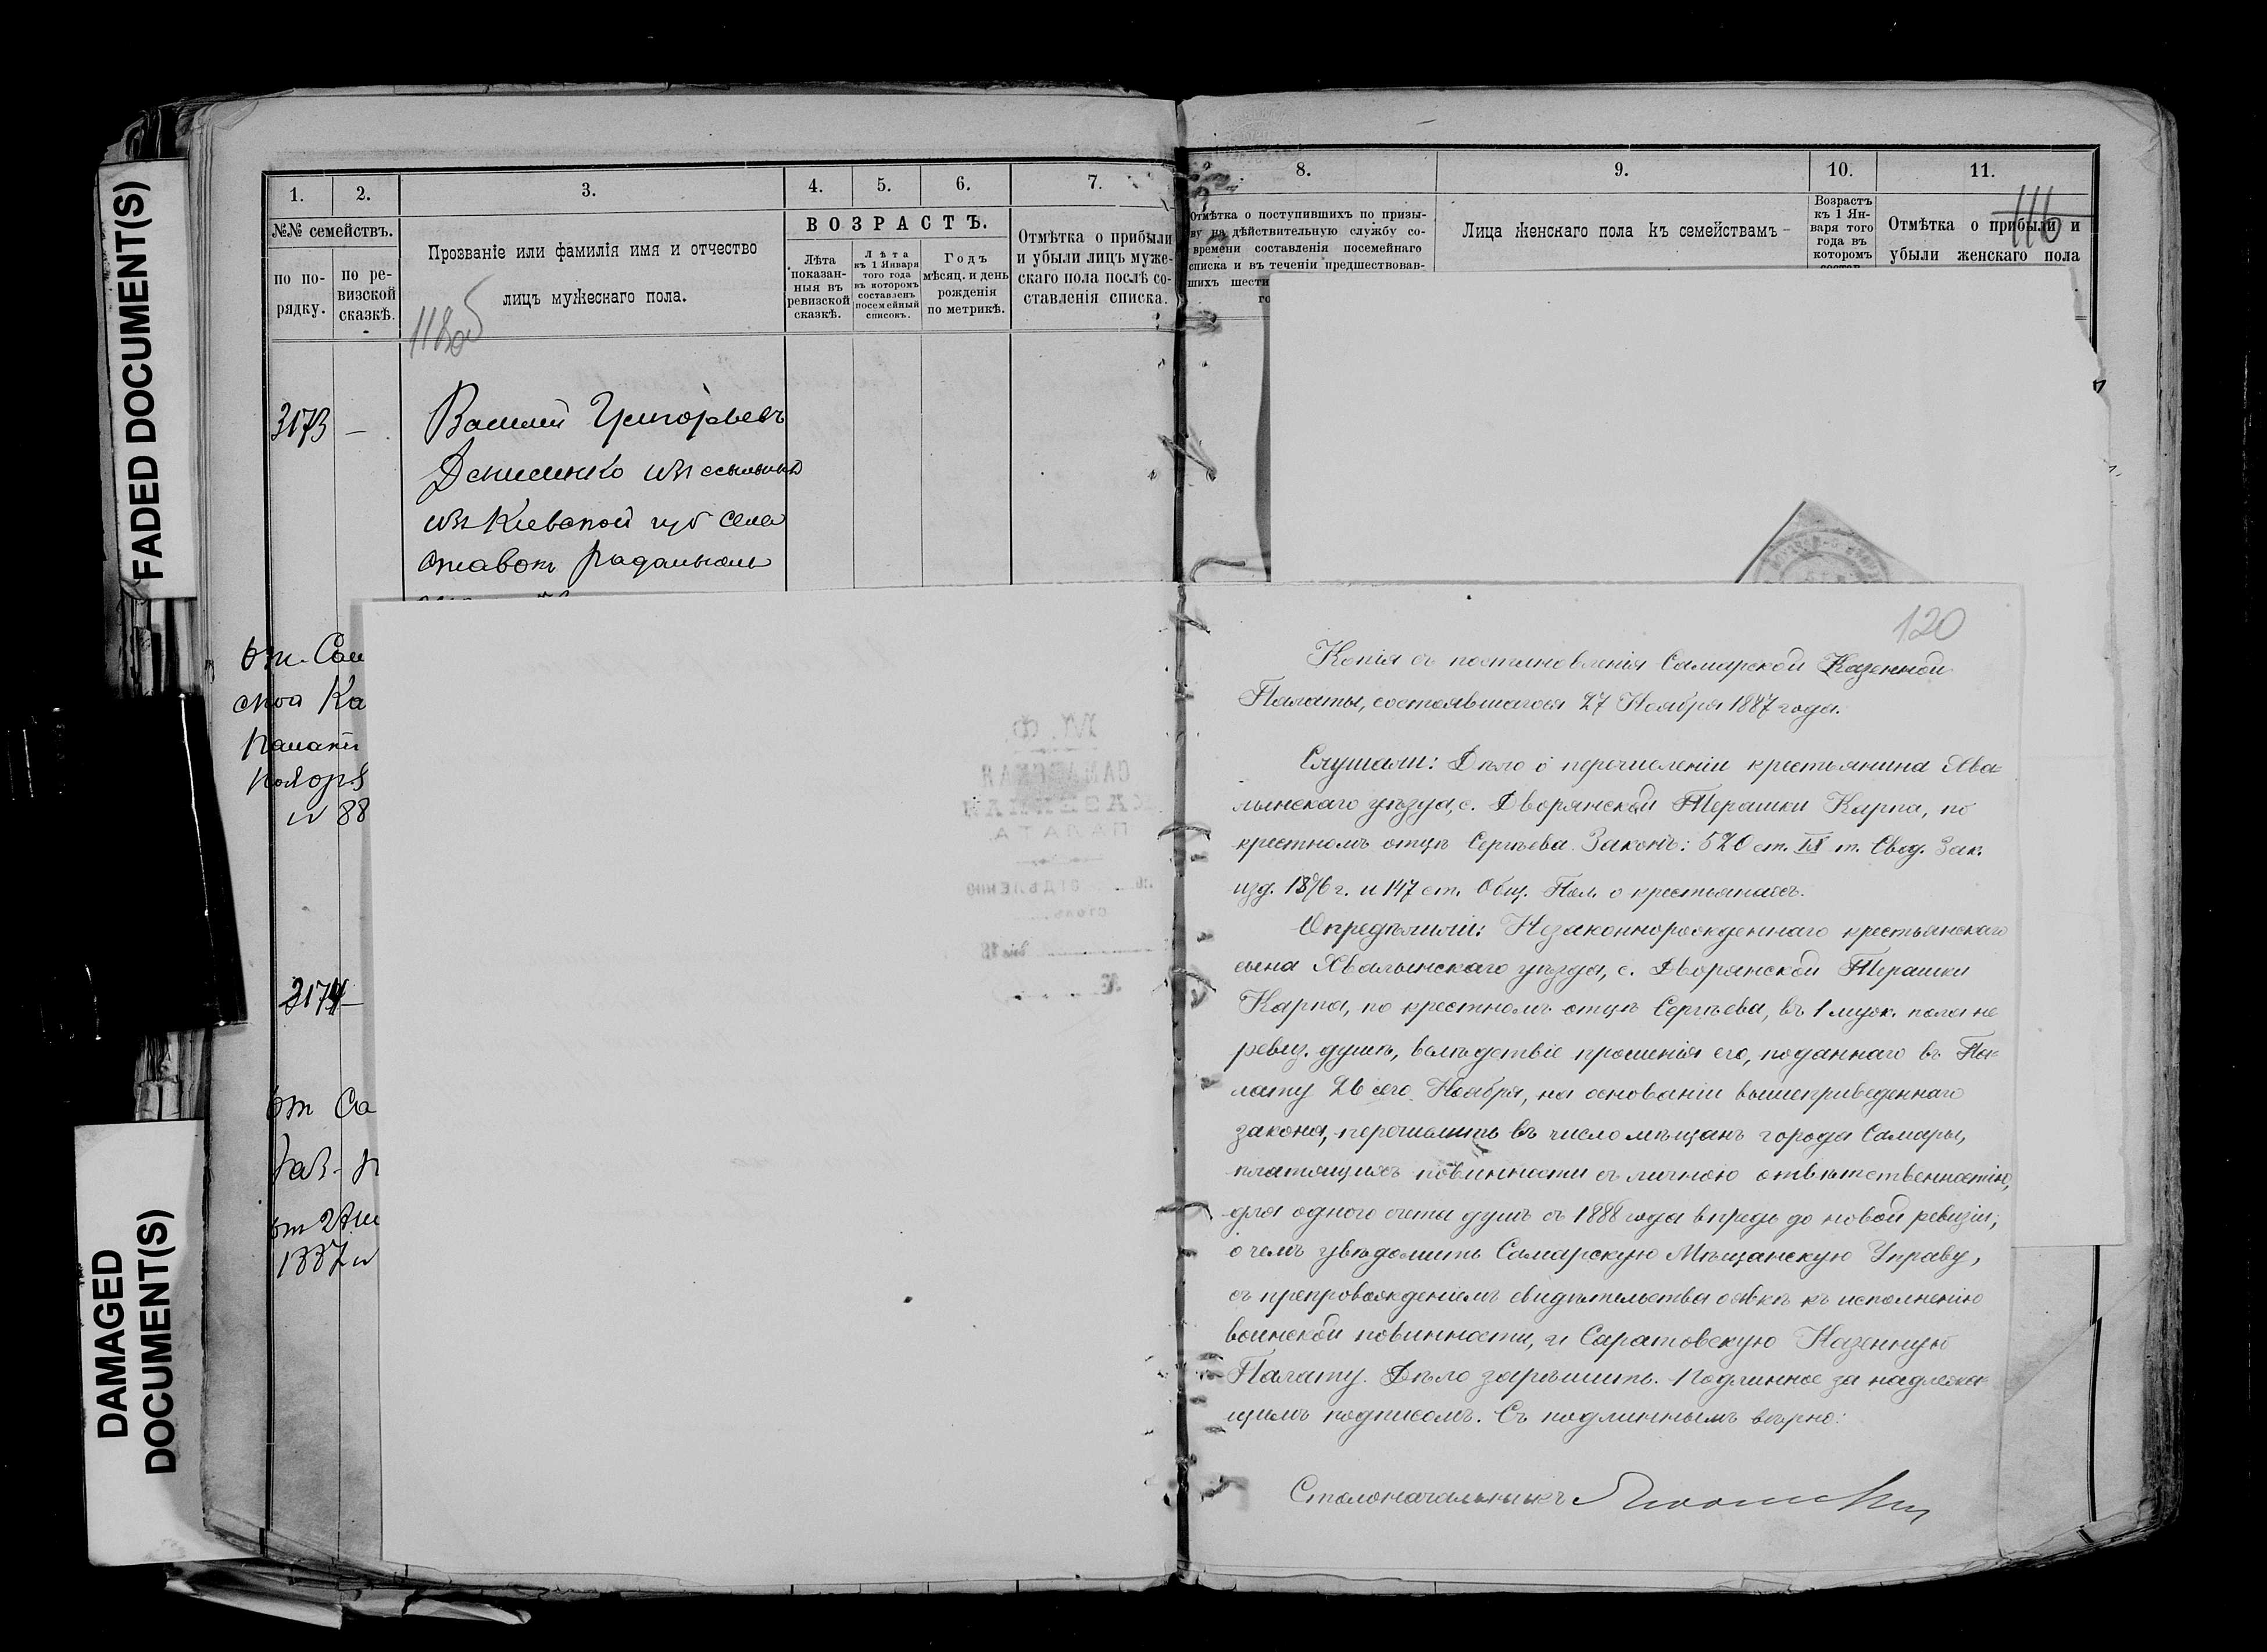 FADED DOCUMENT(S)
DAMAGED
DOCUMENT(S)
1.
2.
3.
4.
5.
6.
7.
№№ семействъ.
по по-
рядку.
по ре-
визской
сказкѣ.
Прозваніе или фамилія имя и отчество
лицъ мужескаго пола.
ВОЗРАСТЪ.
Лѣта
показан-
ныя въ
ревизской
сказкѣ.
Лѣта
къ 1 Января
того года
въ которомъ
составленъ
посемейный
списокъ.
Годъ
мѣсяц. и день
рожденія
по метрикѣ.
Отмѣтка о прибыли
и убыли лицъ муже-
скаго пола послѣ со-
ставленія списка.
118об
3173 —
Василій Григорьевъ
Денисенко изъ ссыльныхъ
изъ Кіевской губ села
От. Сам
ской Ка
Палаты
№ 88
3174 —
От Са
от 27
1887
8.
9.
10.
11.
116
Отмѣтка о поступившихъ по призы-
ву на дѣйствительную службу со-
времени составленія посемейнаго
списка и въ теченіи предшествовав-
шихъ шести
го
Лица женскаго пола къ семействамъ
Возрастъ
къ 1 Ян-
варя того
года въ
которомъ
Отмѣтка о прибыли и
убыли женскаго пола
М. Ф.
САМАРСКАЯ
КАЗЕННАЯ
ПАЛАТА.
ОТДѢЛЕНІЮ
столъ
дня 18
№
120
Копія съ постановленія Самарской Казенной
Палаты, состоявшагося 27 Ноября 1887 года.
Слушали: Дѣло о перечисленіи крестьянина Хва-
лынскаго уѣзда, с. Дворянской Терешки Карпа, по
крестномъ отцѣ Сергѣева. Законъ: 520 ст. IX т. Свод. Зак.
изд. 1876 г. и 147 ст. Общ. Пол. о крестьянахъ.
Опредѣлили: Незаконнорожденнаго крестьянскаго
сына Хвалынскаго уѣзда, с. Дворянской Терешки
Карпа, по крестномъ отцѣ Сергѣева, въ 1 муж. пола не
ревиз. душѣ, вслѣдствіе прошенія его, поданнаго въ Па-
лату 26 сего Ноября, на основаніи вышеприведеннаго
закона, перечислить въ число мѣщанъ города Самары,
платящихъ повинности съ личною отвѣтственностію,
для одного счета душъ съ 1888 года впредь до новой ревизіи;
о чемъ увѣдомить Самарскую Мѣщанскую Управу,
съ препровожденіемъ свидѣтельства о явкѣ къ исполненію
воинской повинности, и Саратовскую Казенную
Палату. Дѣло зарѣшить. Подлинное за надлежа-
щимъ подписомъ. Съ подлиннымъ вѣрно:
Столоначальникъ